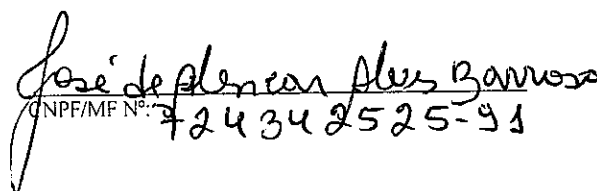 José de Alencar Alves Barroso
CNPF/MF Nº: 724342525-91